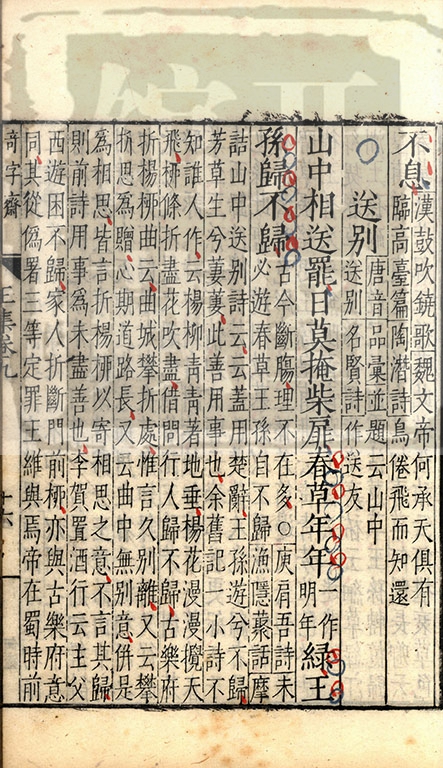 不息漢鼓吹鐃歌魏文帝何承天俱有
臨高臺篇陶潛詩鳥倦飛而知還
送別唐音品彙並題云山中
送別名賢詩作送友
山中相送罷日莫掩柴扉春草年年一作明年綠王
孫歸不歸古今斷腸理不在多○庾肩吾詩未
必遊春草王孫自不歸漁隱藂話摩
詰山中送別詩云云蓋用楚辭王孫遊兮不歸
芳草生兮萋萋此善用事也余舊記一小詩不
知誰人作云楊柳青青著地垂楊花漫漫攪天
飛柳條折盡花吹盡借問行人歸不歸古樂府
折楊柳曲云曲城攀折處惟言久別離又云攀
折思為贈心期道路長又云曲中無別意併是
為相思皆言折楊柳以寄相思之意不言其歸
則前詩用事為未盡善也李賀置酒行云主父
西遊困不歸家人折斷門前柳亦與古樂府意
同其從偽署三等定罪王維與焉帝在蜀時前
奇字齋
王集卷九